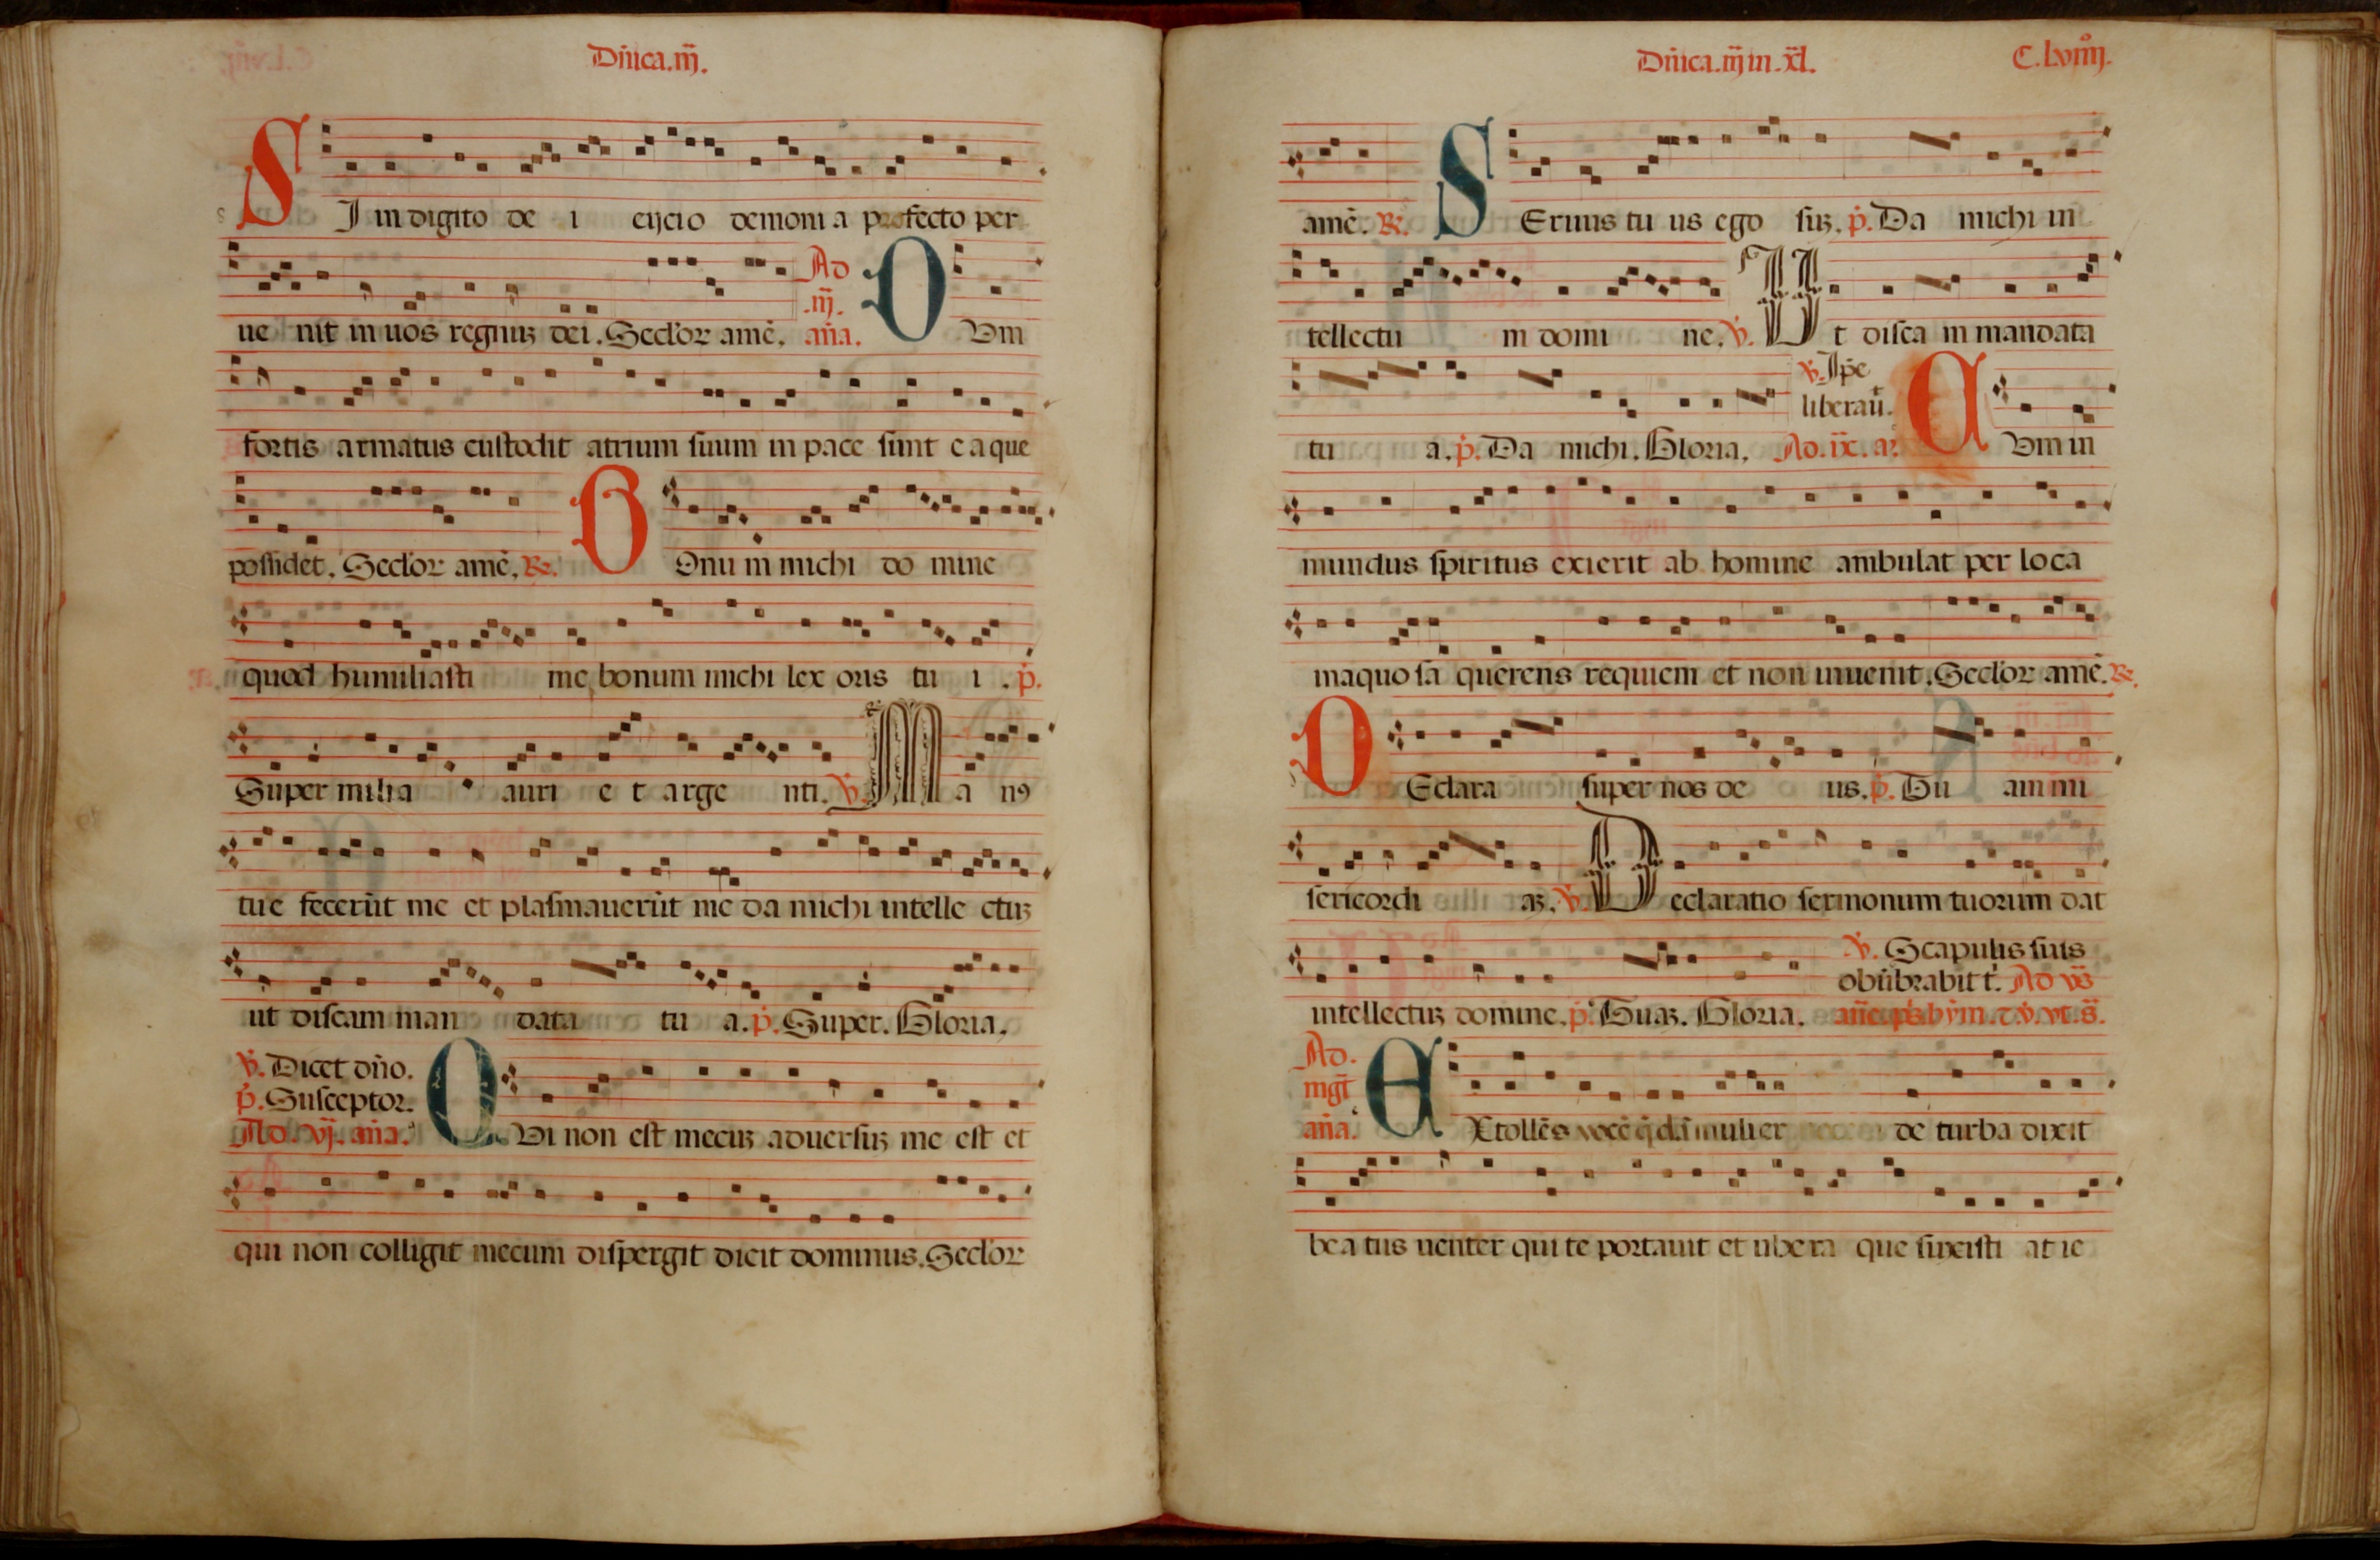 Dñica.iij.
SI in digito de i eijcio demoni a profecto per
ue nit in uos regnuꝫ dei. Seclʼor amē. Ad .iij. aña. DVm
fortis armatus custodit atrium suum in pace sunt e a que
possidet. Seclʼor amē. ꝶ. BOnu m michi do mine
quod humiliasti me bonum michi lex oris tu i . p̓.
Super milia auri e t arge nti. ℣. Ma nꝰ
tue fecerūt me et plasmauerūt me da michi intelle ctuꝫ
ut discam man data tu a. p̓. Super. Gloria.
℣. Dicet dño.
p̓. Susceptor.
Ad. vj. aña. QVi non est mecuꝫ aduersuꝫ me est et
qui non colligit mecum dispergit dicit dominus. Seclʼor
Dñica.iij in .xl.
C.lviiij.
amē. ꝶ. SEruus tu us ego suꝫ. p̓. Da michi in
tellectu m domi ne. ℣. Ut disca m mandata
℣. Ip̄e
liberaū.
tu a. p̓. Da michi. Gloria. Ad. ix. a. CVm in
mundus spiritus exierit ab homine ambulat per loca
inaquo sa querens requiem et non inuenit. Seclʼor amē. ꝶ.
DEclara super nos de us. p̓. Tu am mi
sericordi aꝫ. ℣. Declaratio sermonum tuorum dat
℣. Scapulis suis
obūbrabit t. Ad vꝫ
intellectuꝫ domine. p̓. Tuaꝫ. Gloria. añe. ps. hym. et. ℣. vt. s̄.
Ad.
mgt̄
aña. EXtollēs vocē q̄dā mulier de turba dixit
bea tus uenter qui te portauit et ubera que suxisti at ie